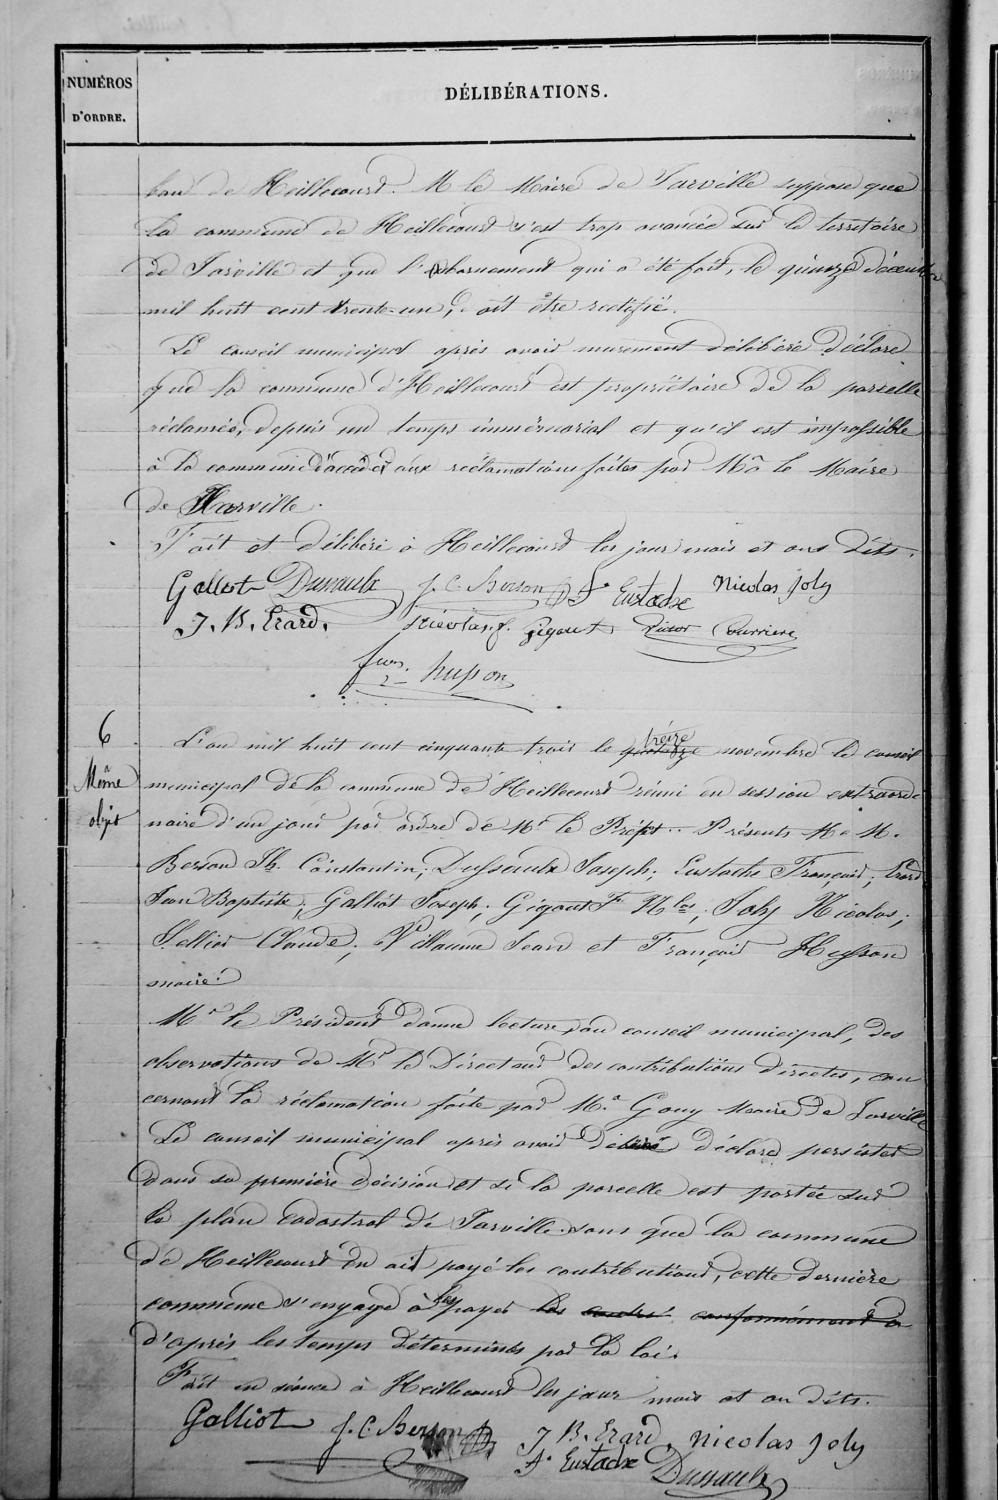 NUMÉROS
D'ORDRE.
DÉLIBÉRATIONS.
ban de Heillecourt. M le Maire de Jarville suppose que
la commune de Heillecourt s'est trop avancée sur le territoire
de Jarville et que l'abornement qui a été fait, le quinze décembre
mil huit cent trente-un, doit être rectifié.
Le conseil municipal après avoir murement délibéré déclare
que la commune d'Heillecourt est propriétaire de la parcelle
réclamée, depuis un temps immémorial et qu'il est impossible
à la commune d'accéder aux réclamations faites par Mr le Maire
de Jarville.
Fait et délibéré à Heillecourt les jour mois et ans dits.
Galliot Dussaulx J. C. Berson F. Eustache Nicolas Joly
J. B. Erard. Nicolas. f. Gigout Victor Courrier
fcois. husson
6
Même
objet
L'an mil huit cent cinquante trois le treize novembre le conseil
municipal de la commune de Heillecourt réuni en session extraordi
naire d'un jour par ordre de Mr le Préfet.. Présents M. M.
Berson Jh. Constantin; Dussaulx Joseph; Eustache François; Erard
Jean Baptiste; Galliot Joseph; Gigout F Nlas; Joly Nicolas;
Sellier Claude; Villaume Jean et François Husson
maire.
Mr le Président donne lecture, au conseil municipal, des
observations de Mr le Directeur des contributions directes, con
cernant la réclamation faite par Mr Gouy Maire de Jarville
Le conseil municipal après avoir délibéré déclare persister
dans sa première décision et si la parcelle est portée sur
le plan cadastral de Jarville sans que la commune
de Heillecourt en ait payé les contributions, cette dernière
commune s'engage à les payer les contri conformément à
d'après les temps déterminés par la loi.
Fait en séance à Heillecourt les jour mois et an dits.
Galliot J. C. Berson J B. Erard. Nicolas Joly
F. Eustache Dussaulx